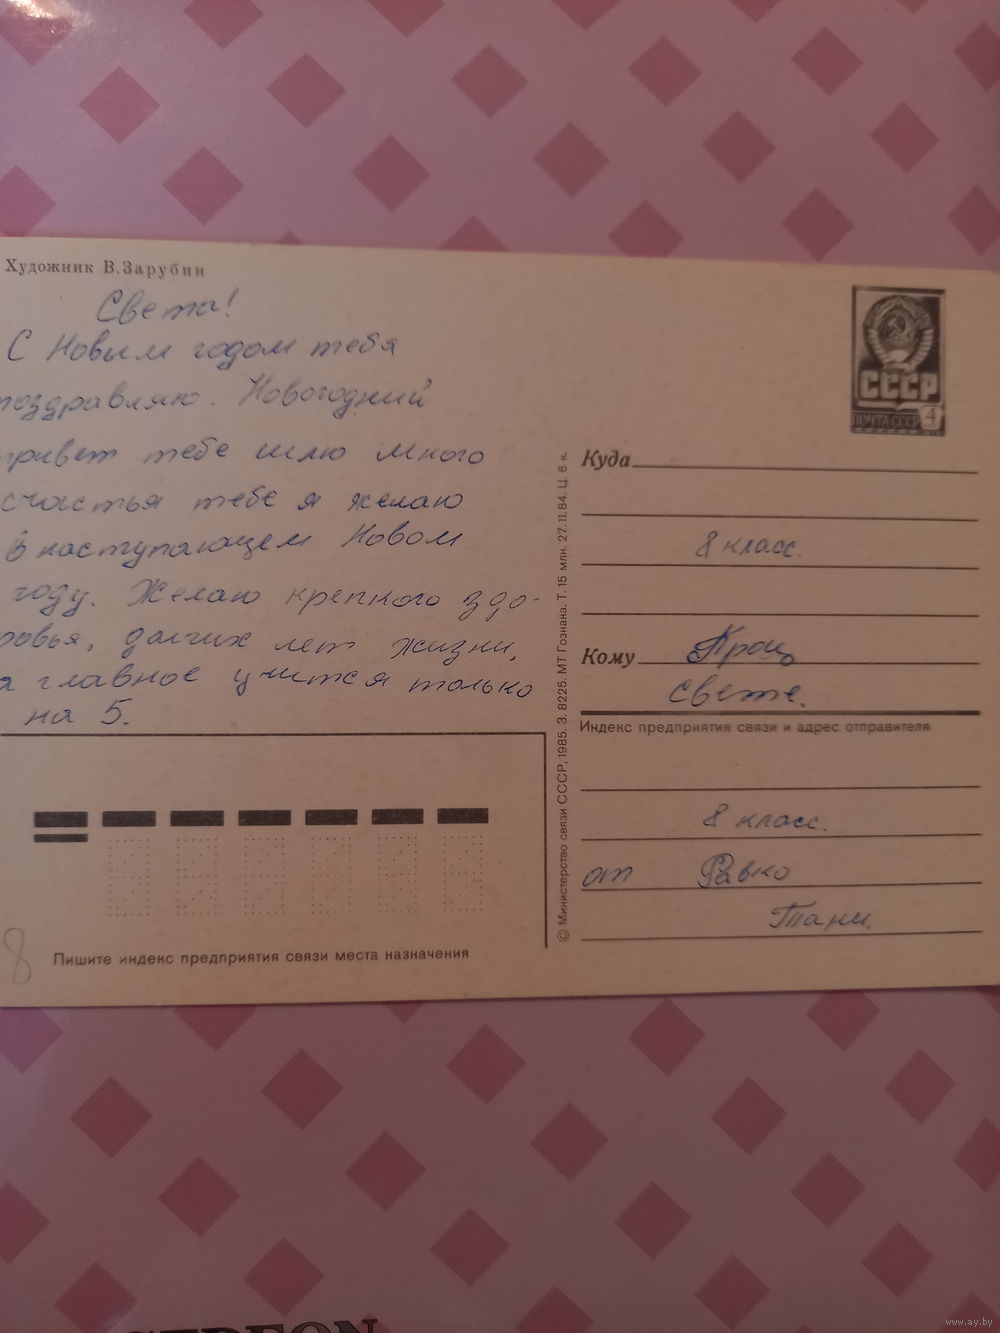 Художник В.Зарубин
Света!
С Новым годом тебя
поздравляю. Новогодний
привет тебе шлю много
счастья тебе я желаю
в наступающем Новом
году. Желаю крепкого здо-
ровья, долгих лет жизни,
а главное учится только
на 5.
СССР
ПОЧТА СССР 4
Куда
8 класс.
Кому Кроц
Свете.
Индекс предприятия связи и адрес отправителя
8 класс.
от Равко
Тани.
© Министерство связи СССР, 1985. З. 8225. МТ Гознака. Т. 15 млн. 27.11.84. Ц. 6 к.
Пишите индекс предприятия связи места назначения
8
www.ay.by